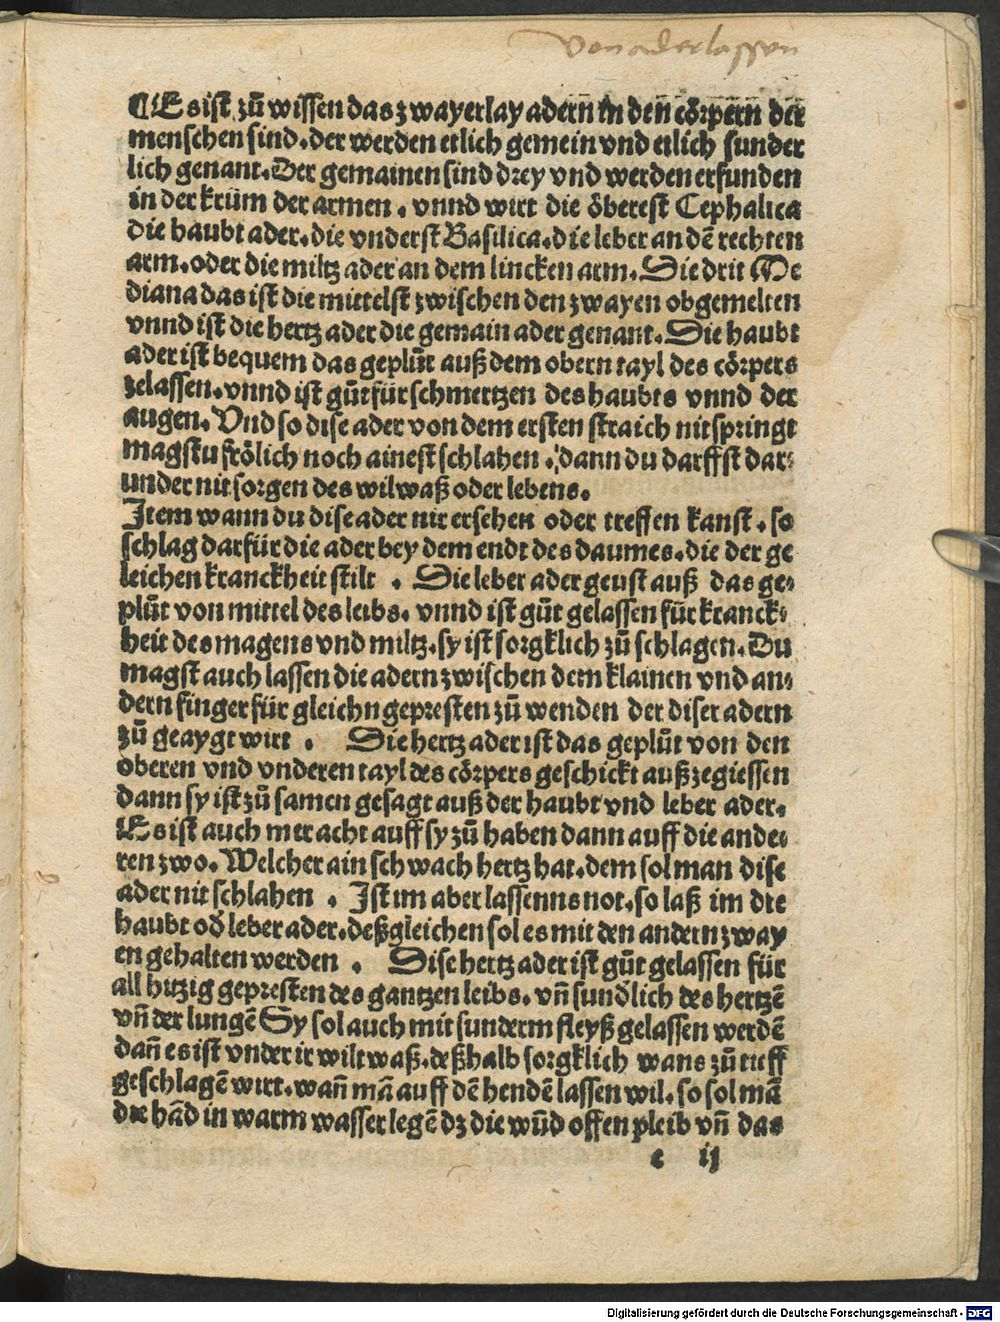 von aderlassen
¶Es ist zů wissen das zwayerlay adern in den cörpern der
menschen sind. der werden etlich gemein vnd etlich sunder
lich genant. Der gemainen sind drey vnd werden erfunden
in der krüm der armen. vnnd wirt die öberest Cephalica
die haubt ader. die vnderst Basilica. die leber an dē rechten
arm. oder die miltz ader an dem lincken arm. Die drit Me
diana das ist die mittelst zwischen den zwayen obgemelten
vnnd ist die hertz ader die gemain ader genant. Die haubt
ader ist bequem das geplůt auß dem obern tayl des cörpers
zelassen. vnnd ist gůt für schmertzen des haubts vnnd der
augen. Vnd so dise ader von dem ersten straich nit springt
magstu frölich noch ainest schlahen. dann du darffst dar⸗
under nit sorgen des wilwaß oder lebens.
Item wann du dise ader nit ersehen oder treffen kanst. so
schlag darfür die ader bey dem endt des daumes. die der ge
leichen kranckheit stilt. Die leber ader geust auß das ge⸗
plůt von mittel des leibs. vnnd ist gůt gelassen für kranck⸗
heit des magens vnd miltz. sy ist sorgklich zů schlagen. Du
magst auch lassen die adern zwischen dem klainen vnd an⸗
dern finger für gleichn gepresten zů wenden der diser adern
zů geaygt wirt. Die hertz ader ist das geplůt von den
oberen vnd vnderen tayl des cörpers geschickt außzegiessen
dann sy ist zů samen gesagt auß der haubt vnd leber ader.
Es ist auch mer acht auff sy zů haben dann auff die ande⸗
ren zwo. Welcher ain schwach hertz hat. dem sol man dise
ader nit schlahen. Ist im aber lassenns not. so laß im die
haubt od̕ leber ader. deßgleichen sol es mit den andern zway
en gehalten werden. Dise hertz ader ist gůt gelassen für
all hitzig gepresten des gantzen leibs. vn̄ sund̕lich des hertzē
vn̄ der lungē Sy sol auch mit sunderm fleyß gelassen werdē
dan̄ es ist vnder ir wiltwaß. deßhalb sorgklich wans zů tieff
geschlagē wirt. wan̄ mā auff dē hendē lassen wil. so sol mā
die hād in warm wasser legē dz die wūd offen pleib vn̄ das
e ij
Digitalisierung gefördert durch die Deutsche Forschungsgemeinschaft - DFG